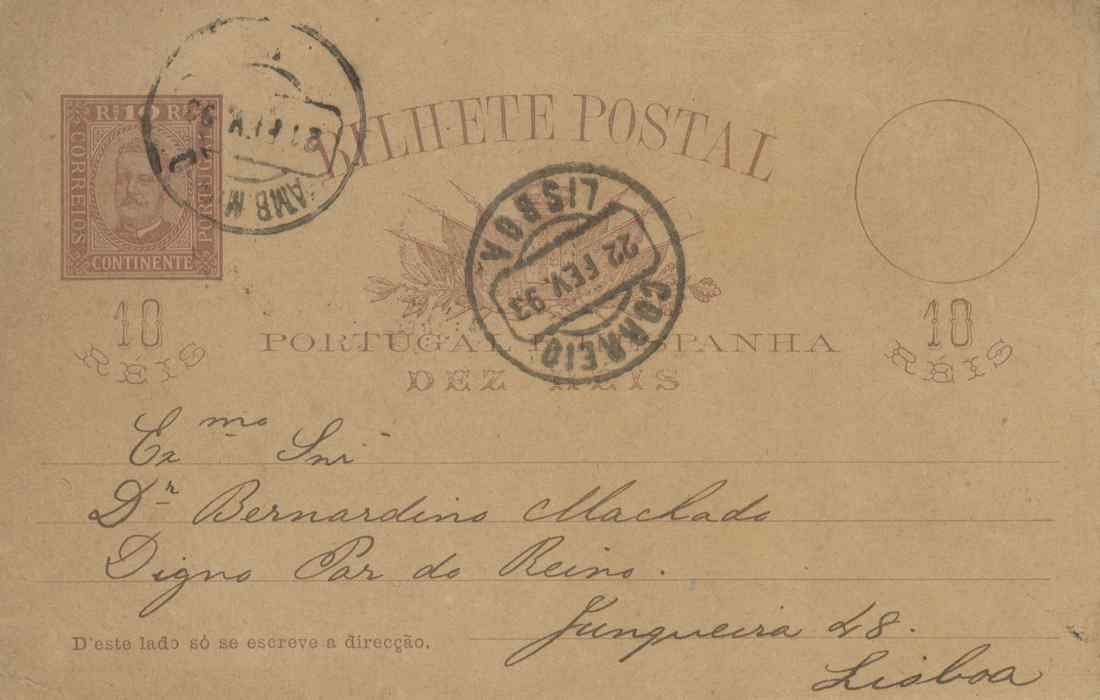 BILHETE POSTAL
Rs 10 Rs
CORREIOS
PORTUGAL
CONTINENTE
AMB. M
21 FEV. 93
LISBOA
22 FEV. 93
CORREIO
10
RÉIS
10
RÉIS
PORTUGAL E HESPANHA
DEZ RÉIS
Exmo Snr
Dr Bernardino Machado
Digno Par do Reino.
Junqueira 48.
Lisboa
D'este lado só se escreve a direcção.